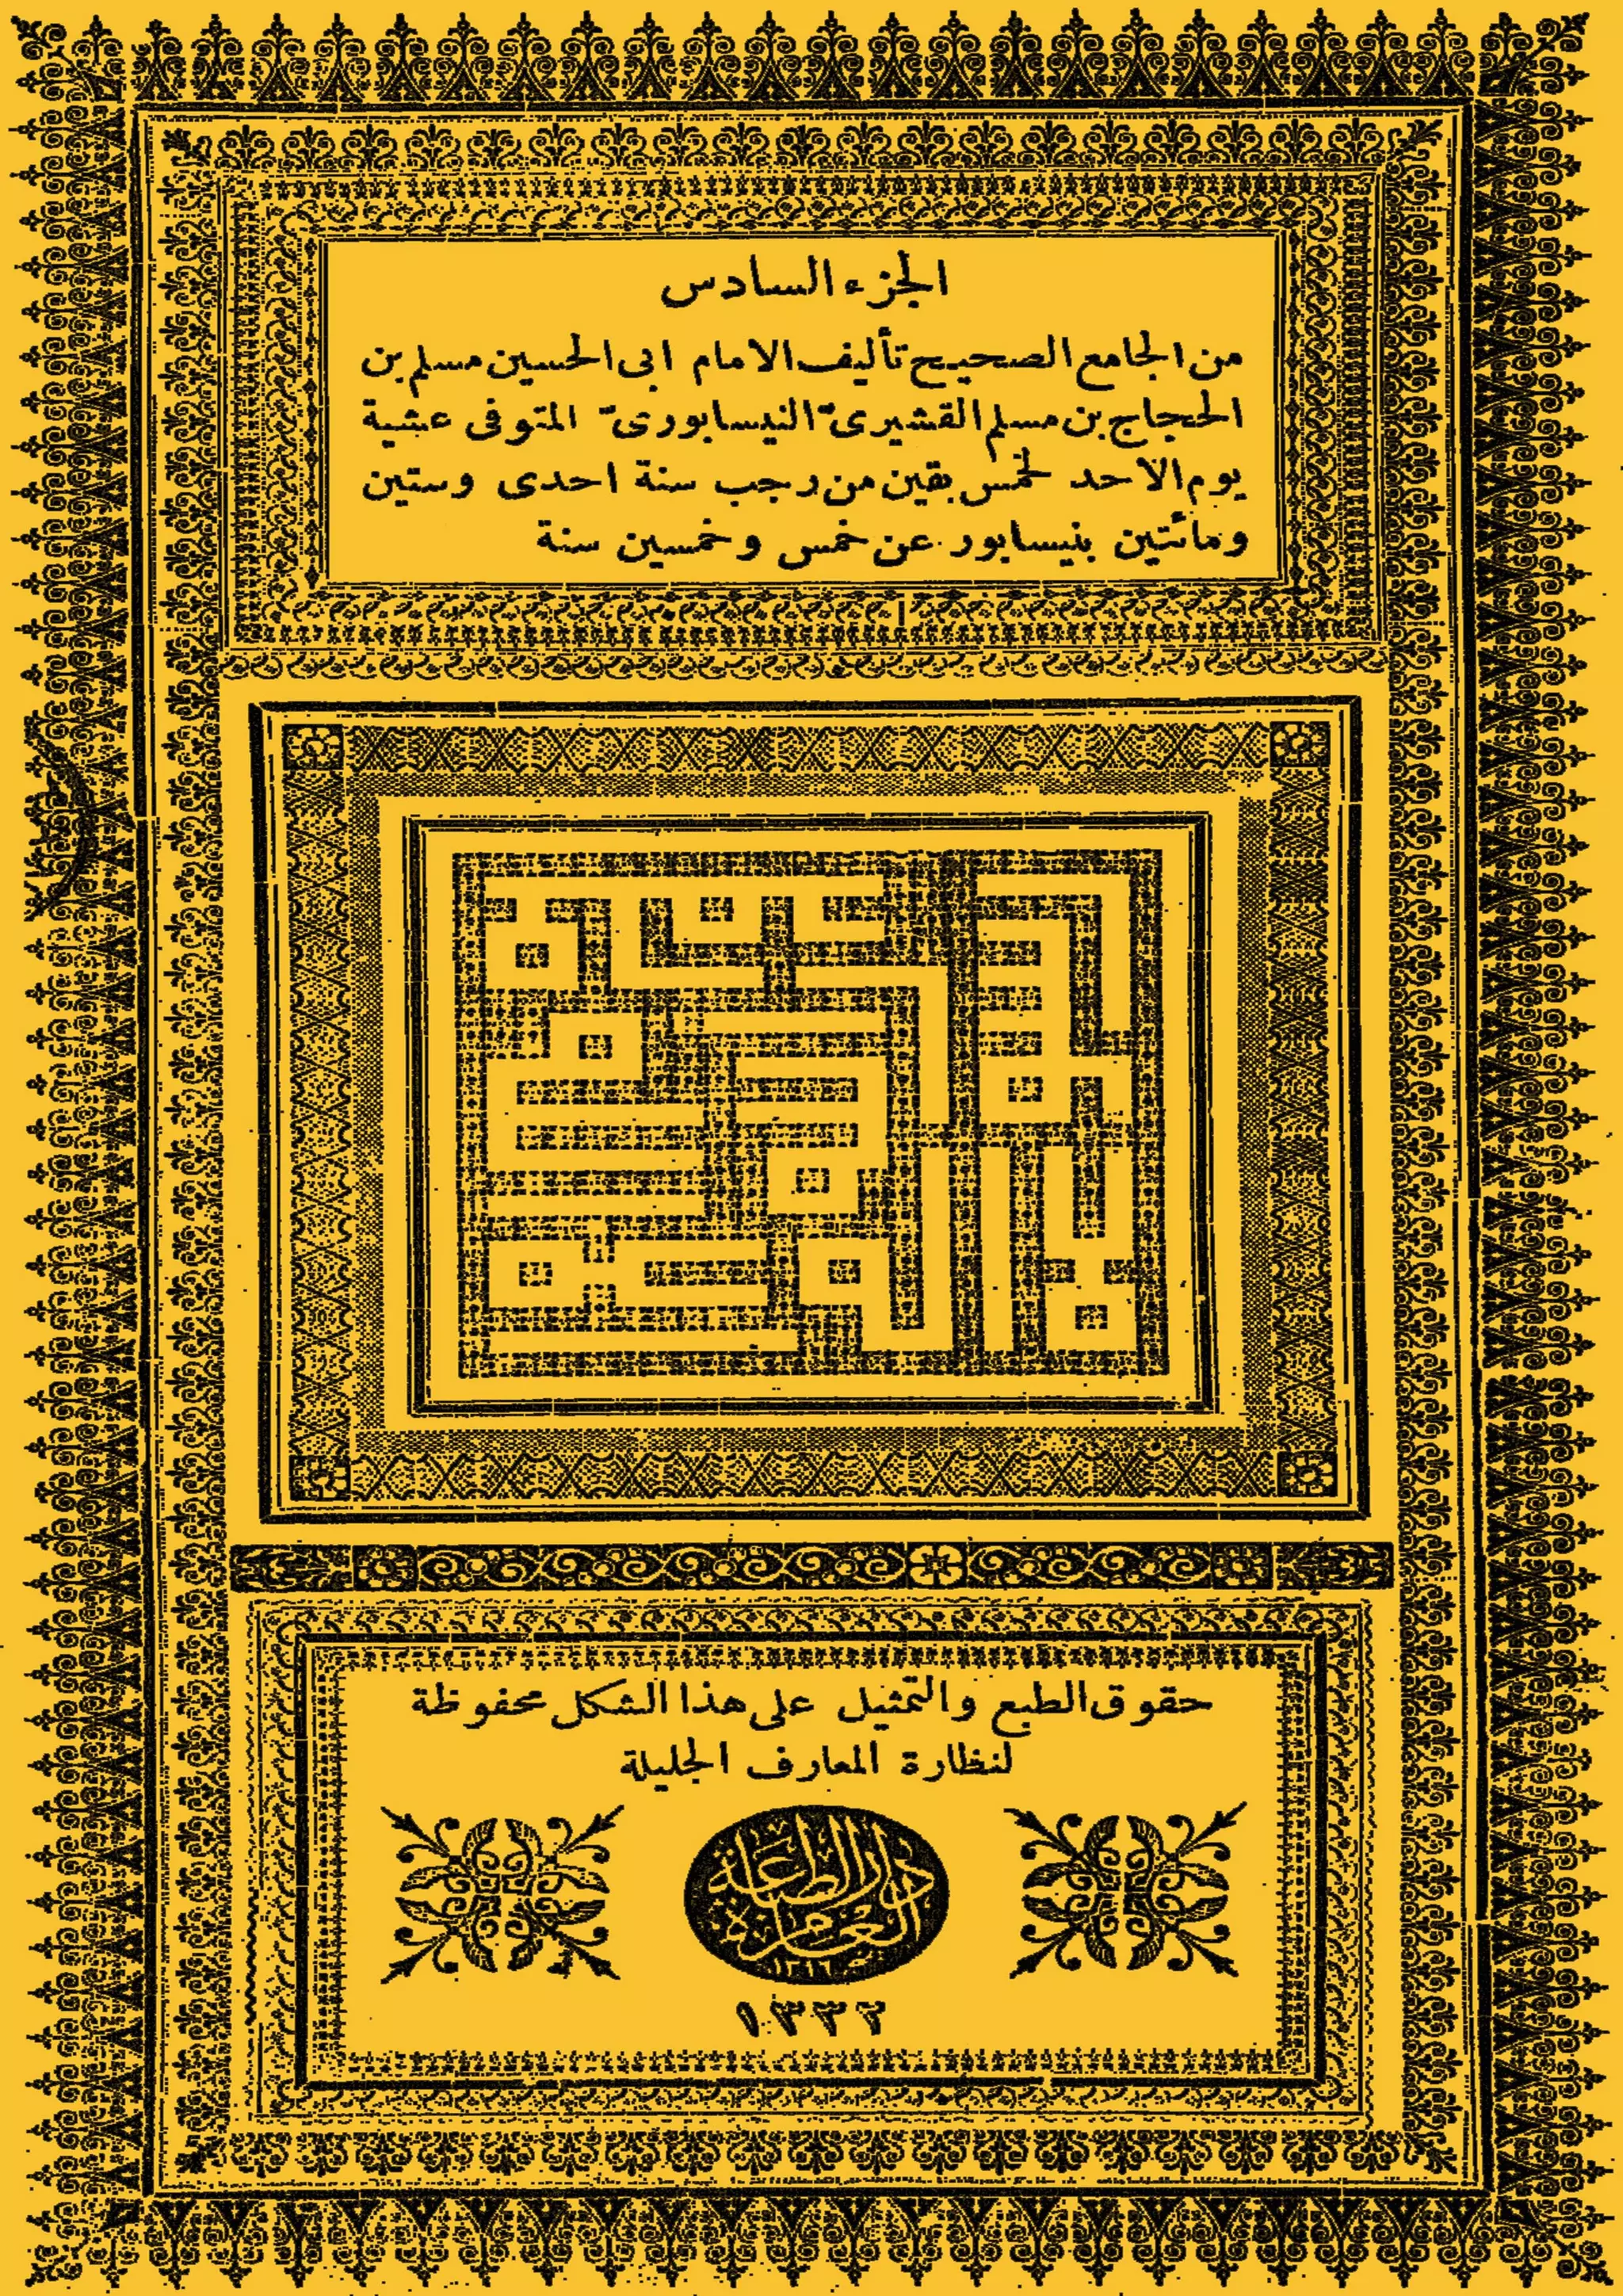 الجزء السادس
من الجامع الصحيح تأليف الامام ابى الحسين مسلم بن
الحجاج بن مسلم القشيرىّ النيسابورىّ المتوفى عشية
يوم الاحد لخمس بقين من رجب سنة احدى وستين
ومائتين بنيسابور عن خمس وخمسين سنة
حقوق الطبع والتمثيل على هذا الشكل محفوظة
لنظارة المعارف الجليلة
دار الطباعة
العامرة
١٣٣٢